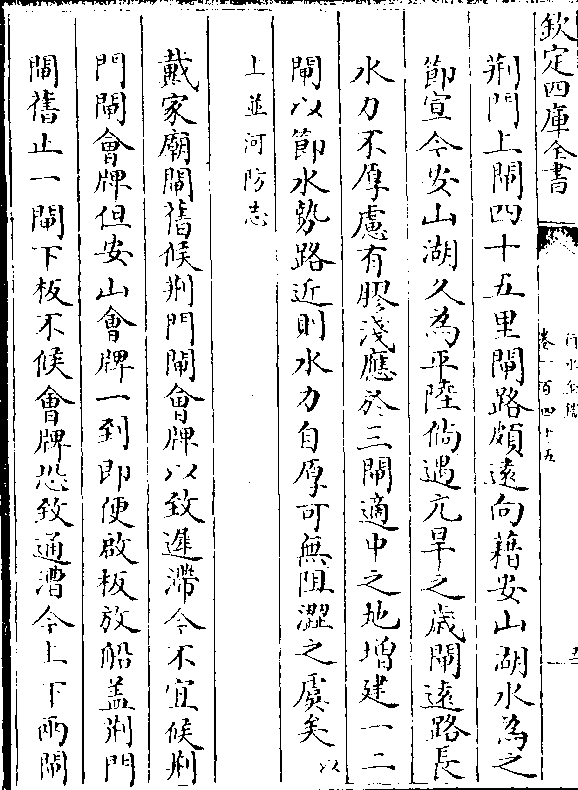 欽定四庫全書
行水金鑑
卷一百四十五
荆門上閘四十五里閘路頗遠向藉安山湖水為之
節宣今安山湖久為平陸倘遇亢旱之歲閘遠路長
水力不厚慮有膠淺應於三閘適中之地增建一二
閘以節水勢路近則水力自厚可無阻澀之虞矣以
上並河防志
戴家廟閘舊候荆門閘會牌以致遲滯今不宜候荆
門閘會牌但安山會牌一到即便啟板放船盖荆門
閘舊止一閘下板不候會牌恐致通漕今上下兩閘